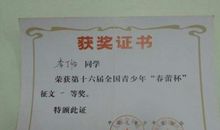 获奖证书
同学
荣获第十六届全国青少年“春蕾杯”
征文一等奖。
特颁此证